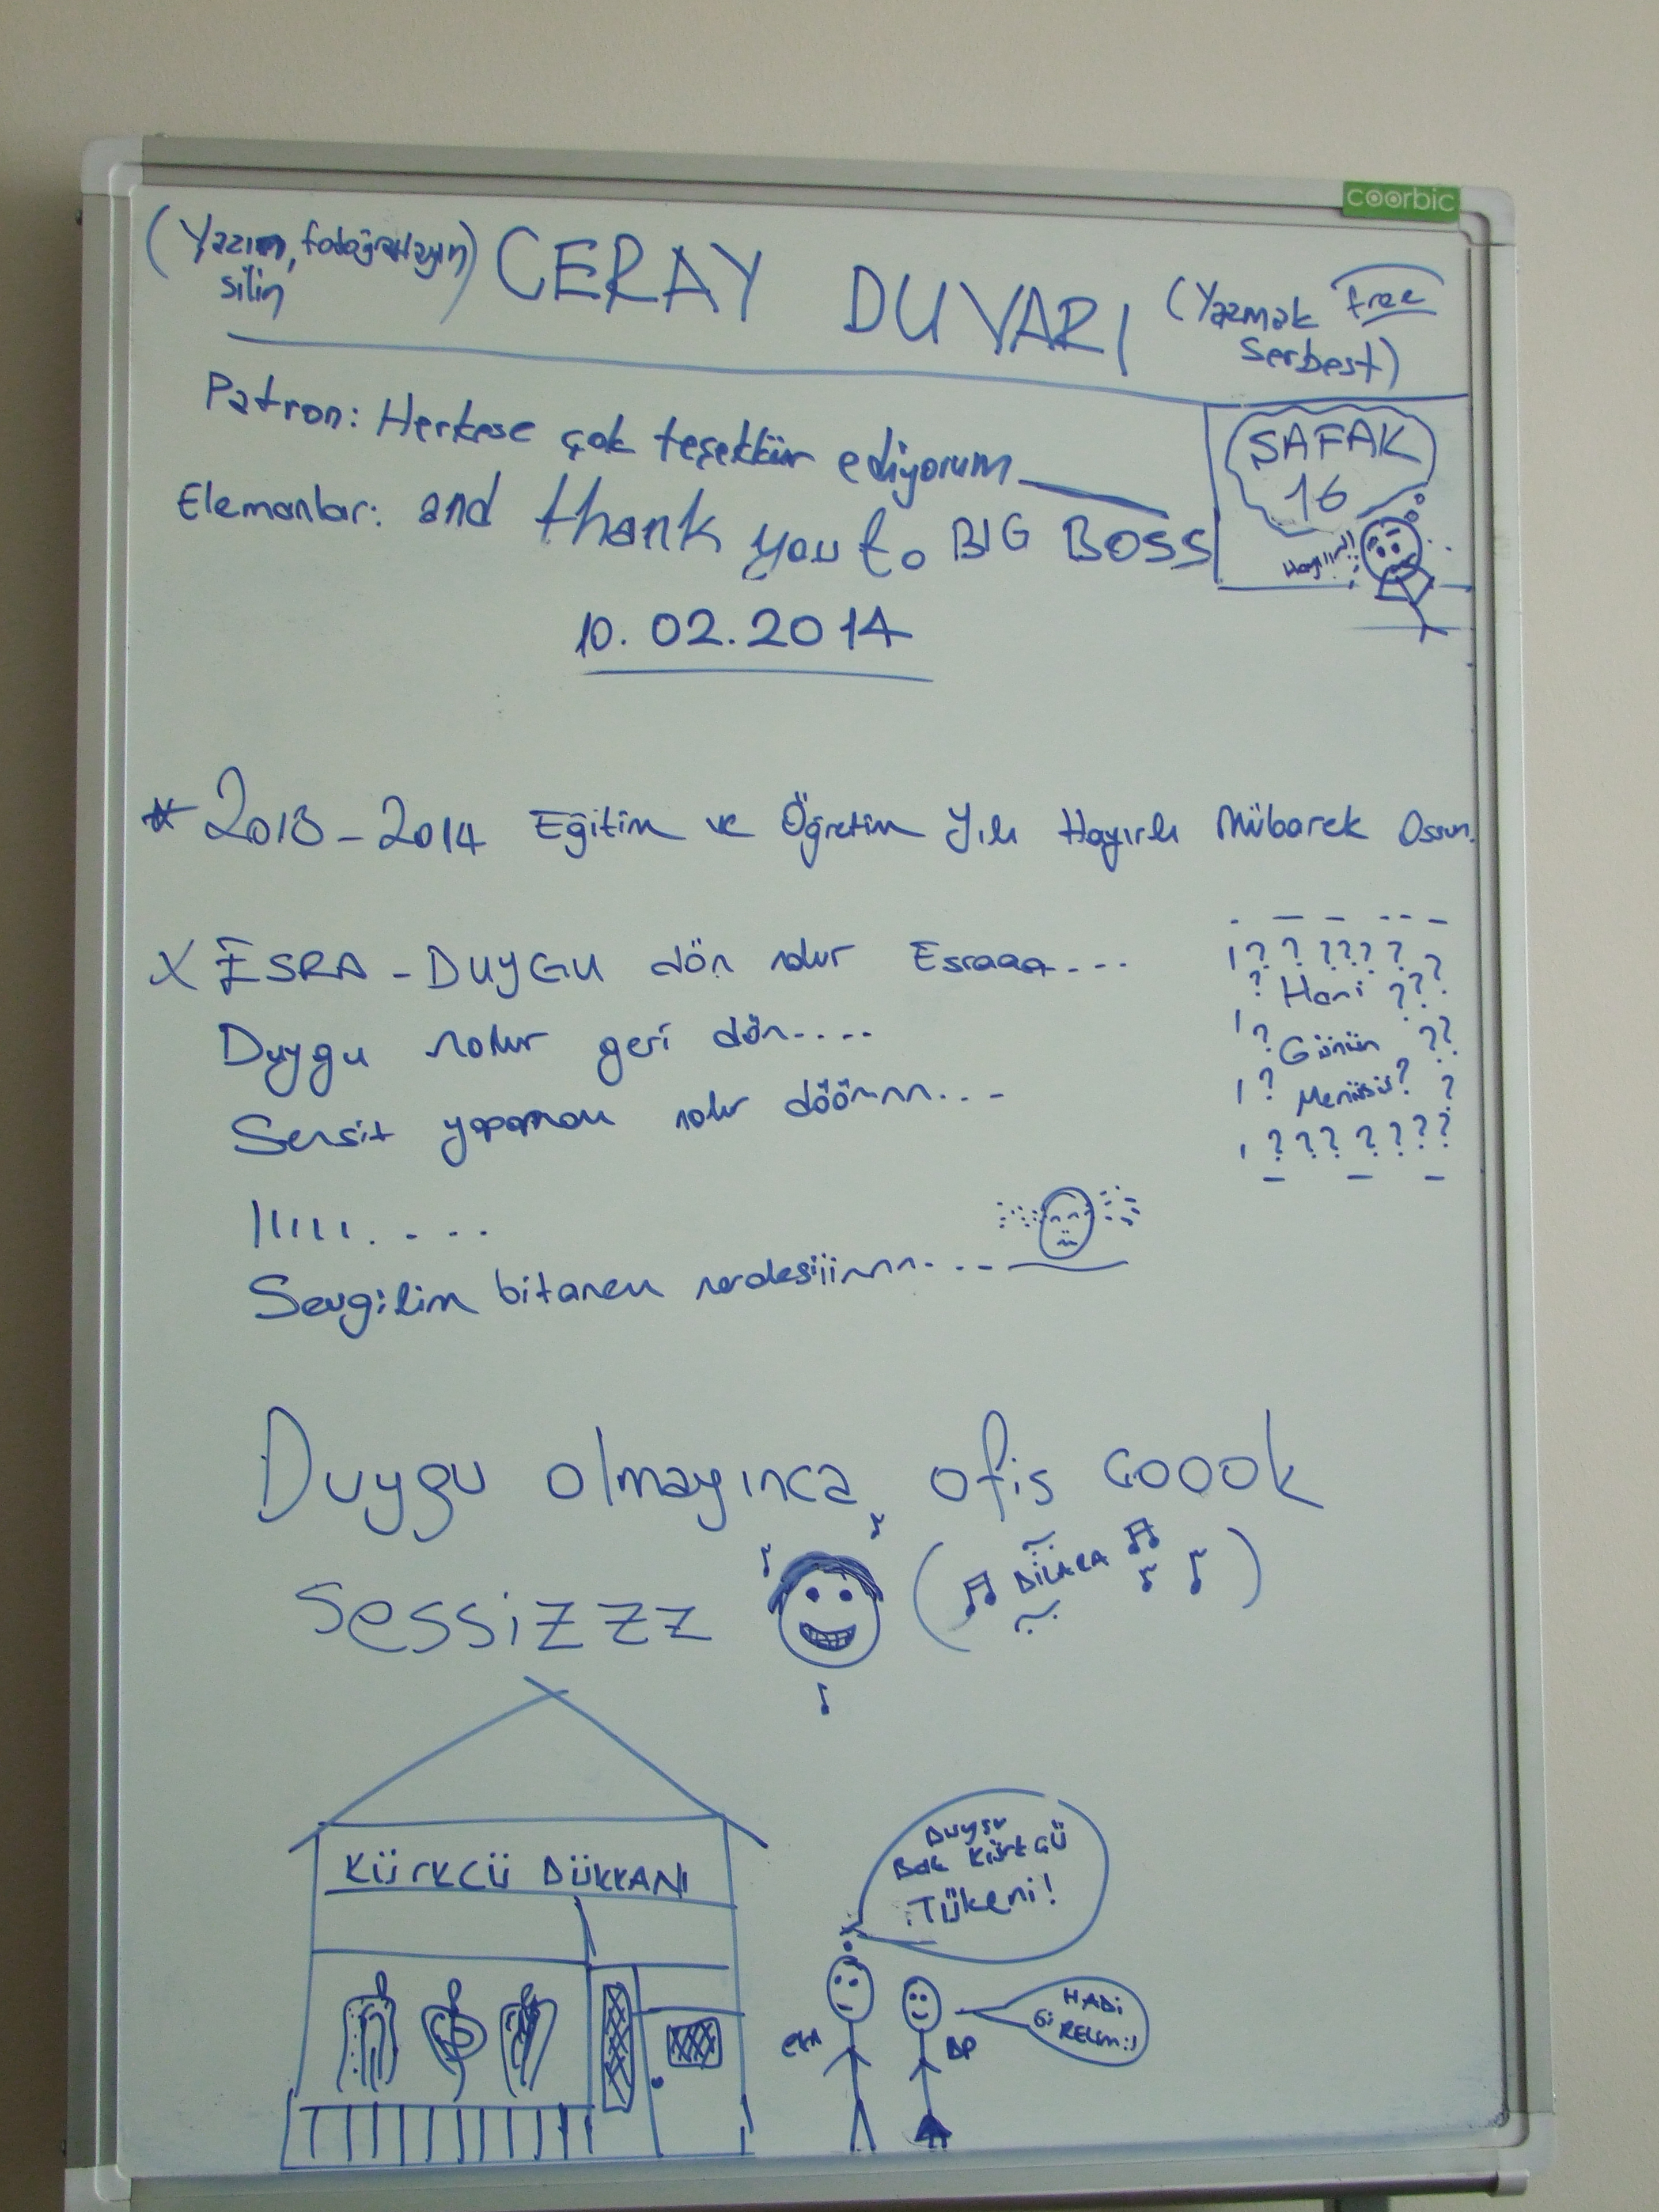 coorbic
(Yazın, fotoğraflayın, silin)
CERAY DUVARI
(Yazmak Free
Serbest)
Patron: Herkese çok teşekkür ediyorum
Elemanlar: and thank you to BIG BOSS
ŞAFAK
16
Hayııır!!
10.02.2014
* 2013-2014 Eğitim ve Öğretim Yılı Hayırlı Mübarek Ossun.
X ESRA - DUYGU dön nolur Esraaa....
Duygu nolur geri dön....
Sensit yapamam nolur döönnn...
IIIII.....
Sevgilim bitanem nerdesiiinnn....
? ? ? ? ? ?
? Hani ???
? Günün ??
? Menüsü? ?
? ? ? ? ? ? ?
Duygu olmayınca, ofis çoook
sessizzz
(DİLARA)
KÜRKCÜ DÜKKANI
Duygu
Bak Kürkçü
Tükeni!
HADİ
GİRELİM:)
DP